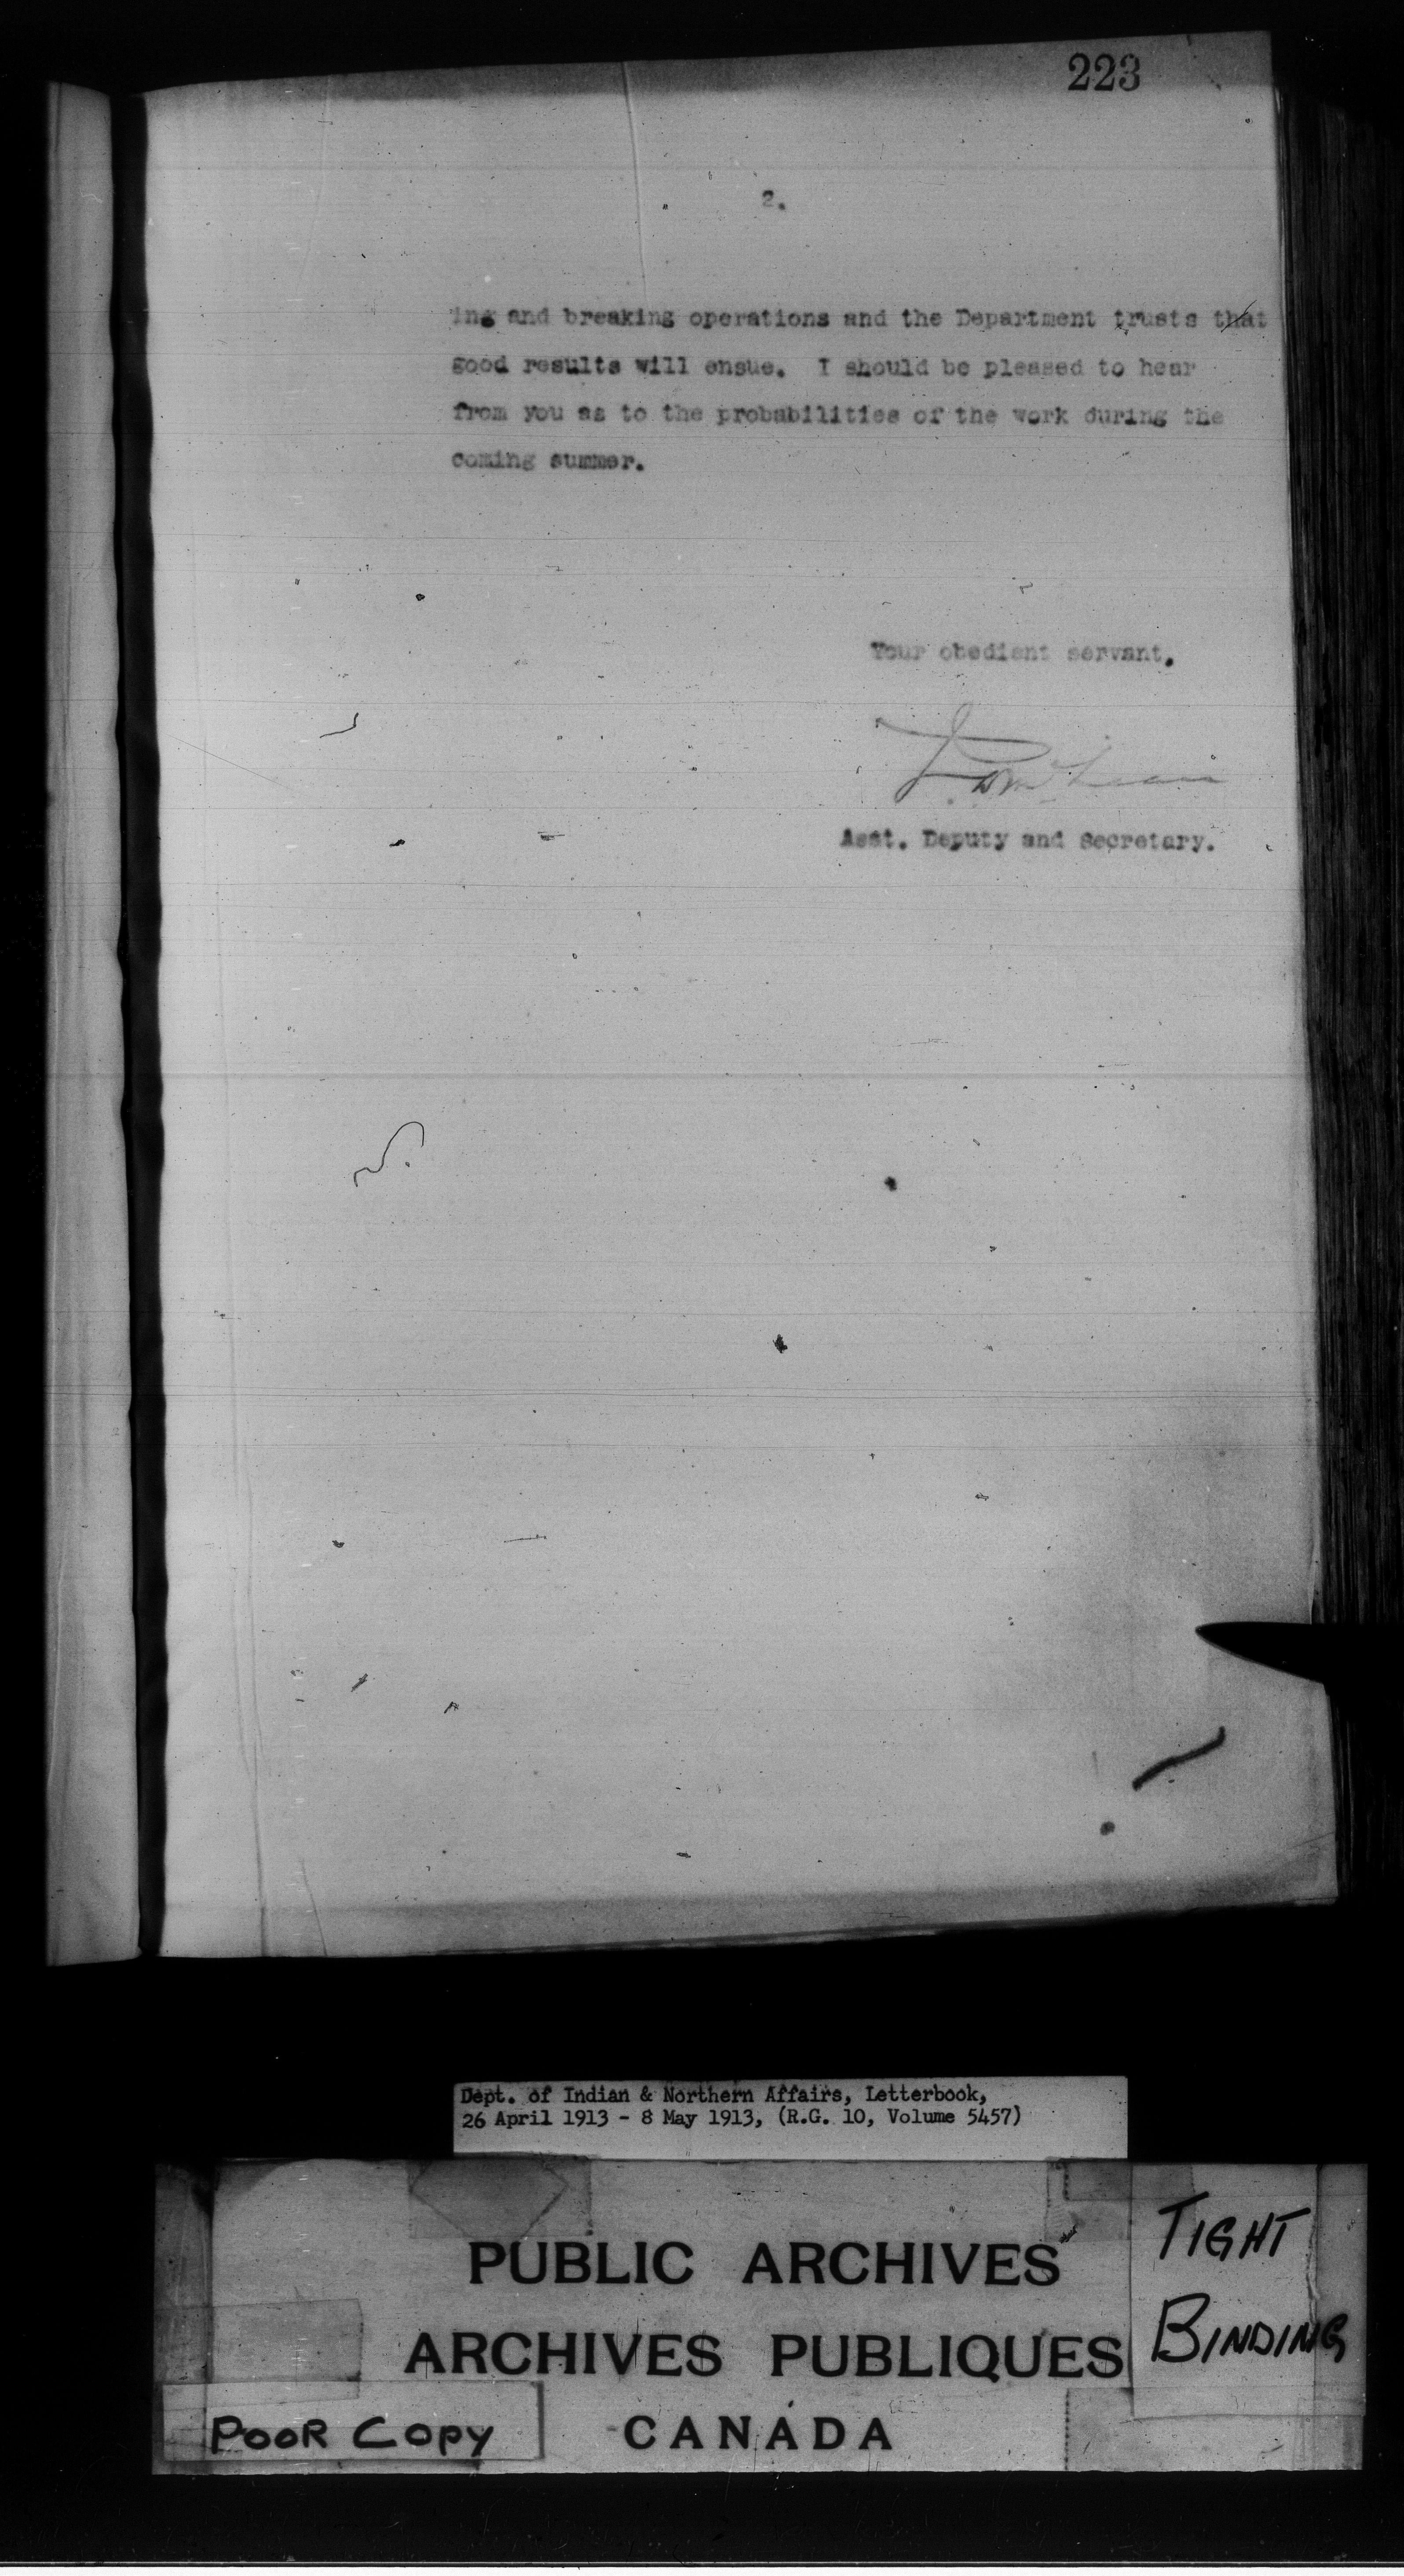 223
2.
ing and breaking operations and the Department trusts that
good results will ensue. I should be pleased to hear
from you as to the probabilities of the work during the
coming summer.
Your obedient servant.
J.D. McLean
Asst. Deputy and Secretary.
Dept. of Indian & Northern Affairs, Letterbook,
26 April 1913 - 8 May 1913, (R.G. 10, Volume 5457)
PUBLIC ARCHIVES
ARCHIVES PUBLIQUES
CANADA
TIGHT
BINDING
POOR COPY